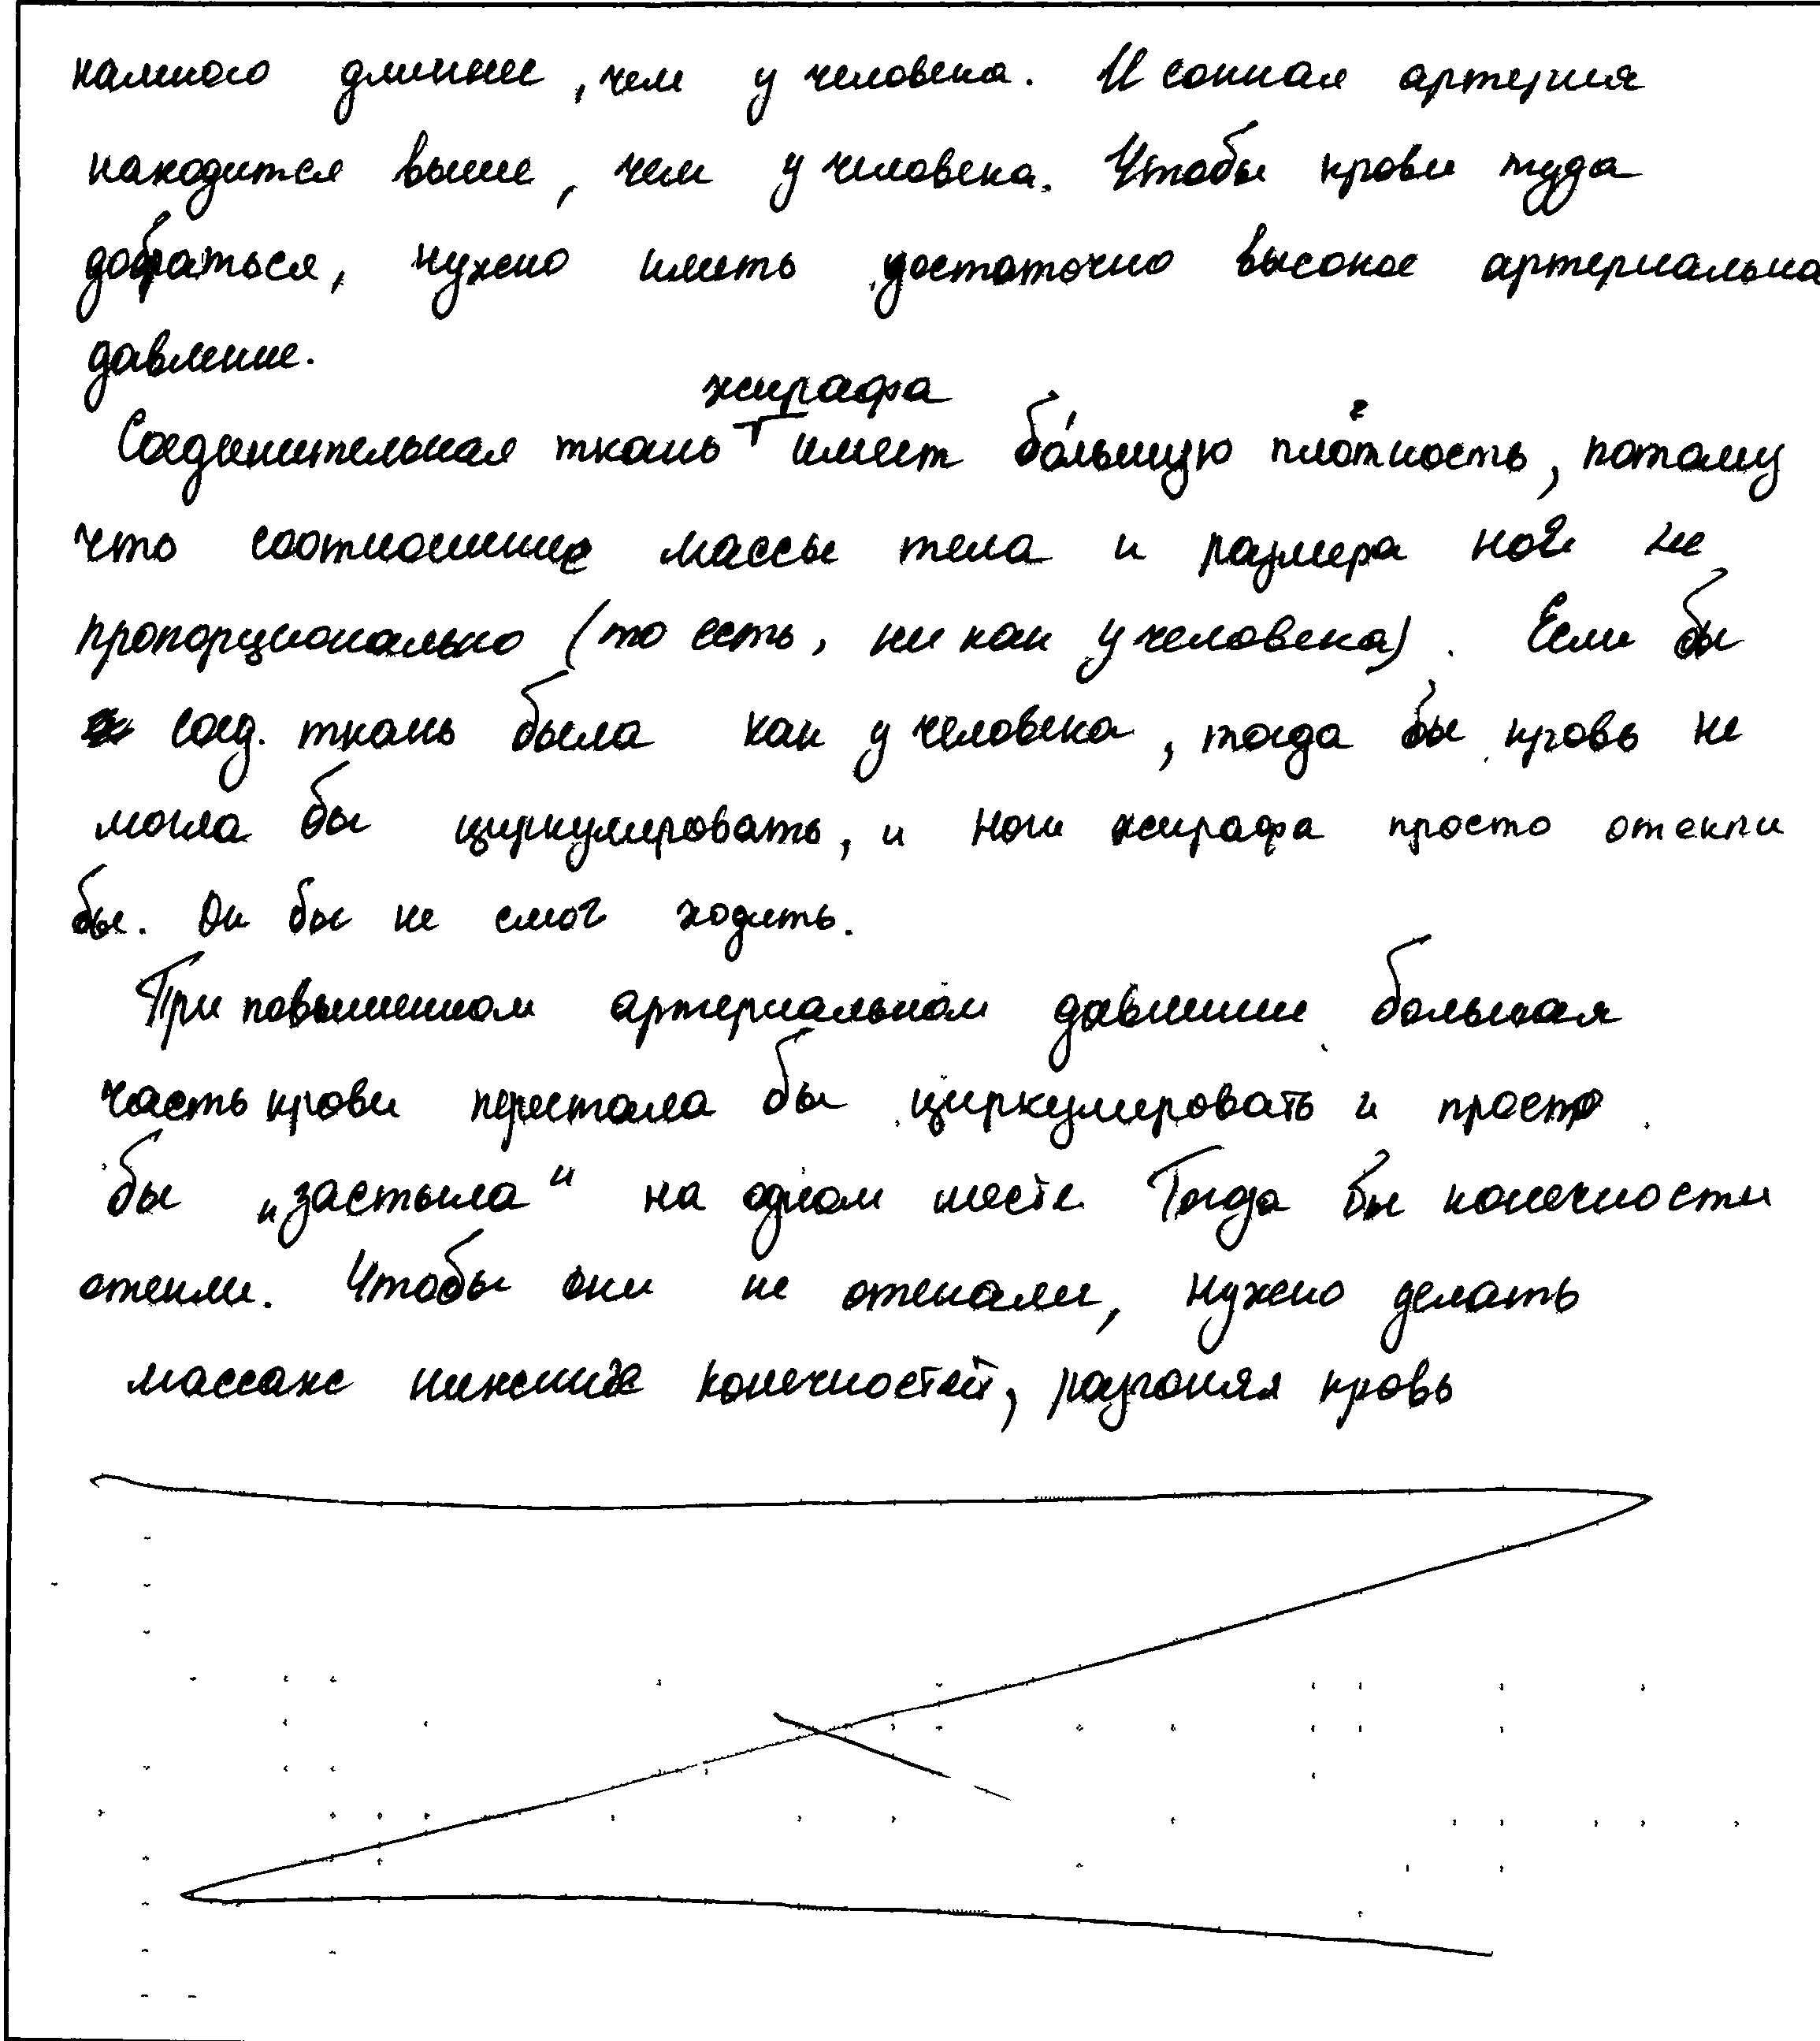 намного длиннее, чем у человека. И сонная артерия
находится выше, чем у человека. Чтобы крови туда
добраться, нужно иметь достаточно высокое артериально
давление.
жирафа
Соединительная ткань имеет бо́льшую плотность, потому
что соотношение массы тела и размера ног не
пропорционально (то есть, не как у человека). Если бы
соед. ткань была как у человека, тогда бы кровь не
могла бы циркулировать, и ноги жирафа просто отекли
бы. Он бы не смог ходить.
При повышенном артериальном давлении большая
часть крови перестала бы циркулировать и просто
бы „застыла“ на одном месте. Тогда бы конечности
отекли. Чтобы они не отекали, нужно делать
массаж нижних конечностей, разгоняя кровь